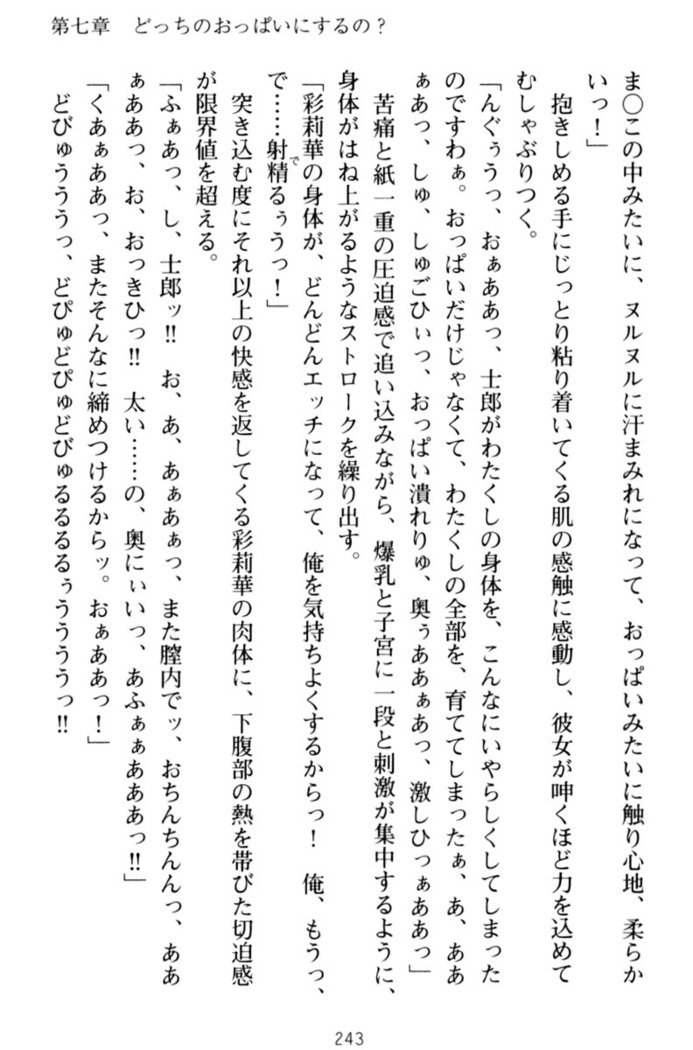 第七章　どっちのおっぱいにするの？
ま〇この中みたいに、ヌルヌルに汗まみれになって、おっぱいみたいに触り心地、柔らか
いっ！」
　抱きしめる手にじっとり粘り着いてくる肌の感触に感動し、彼女が呻くほど力を込めて
むしゃぶりつく。
「んぐぅうっ、おぁああっ、士郎がわたくしの身体を、こんなにいやらしくしてしまった
のですわぁ。おっぱいだけじゃなくて、わたくしの全部を、育ててしまったぁ、あ、ああ
ぁあっ、しゅ、しゅごひぃっ、おっぱい潰れりゅ、奥ぅああぁあっ、激しひっぁああっ」
　苦痛と紙一重の圧迫感で追い込みながら、爆乳と子宮に一段と刺激が集中するように、
身体がはね上がるようなストロークを繰り出す。
「彩莉華の身体が、どんどんエッチになって、俺を気持ちよくするからっ！　俺、もうっ、
で……射精るぅうっ！」
　突き込む度にそれ以上の快感を返してくる彩莉華の肉体に、下腹部の熱を帯びた切迫感
が限界値を超える。
「ふぁあっ、し、士郎ッ!!　お、あ、あぁあぁっ、また膣内でッ、おちんちんんっ、ああ
ぁああっ、お、おっきひっ!!　太い……の、奥にぃいっ、あふぁぁあああっ!!」
「くあぁああっ、またそんなに締めつけるからッ。おぁああっ！」
　どびゅうううっ、どぴゅどぴゅどびゅるるるるぅううううっ!!
243